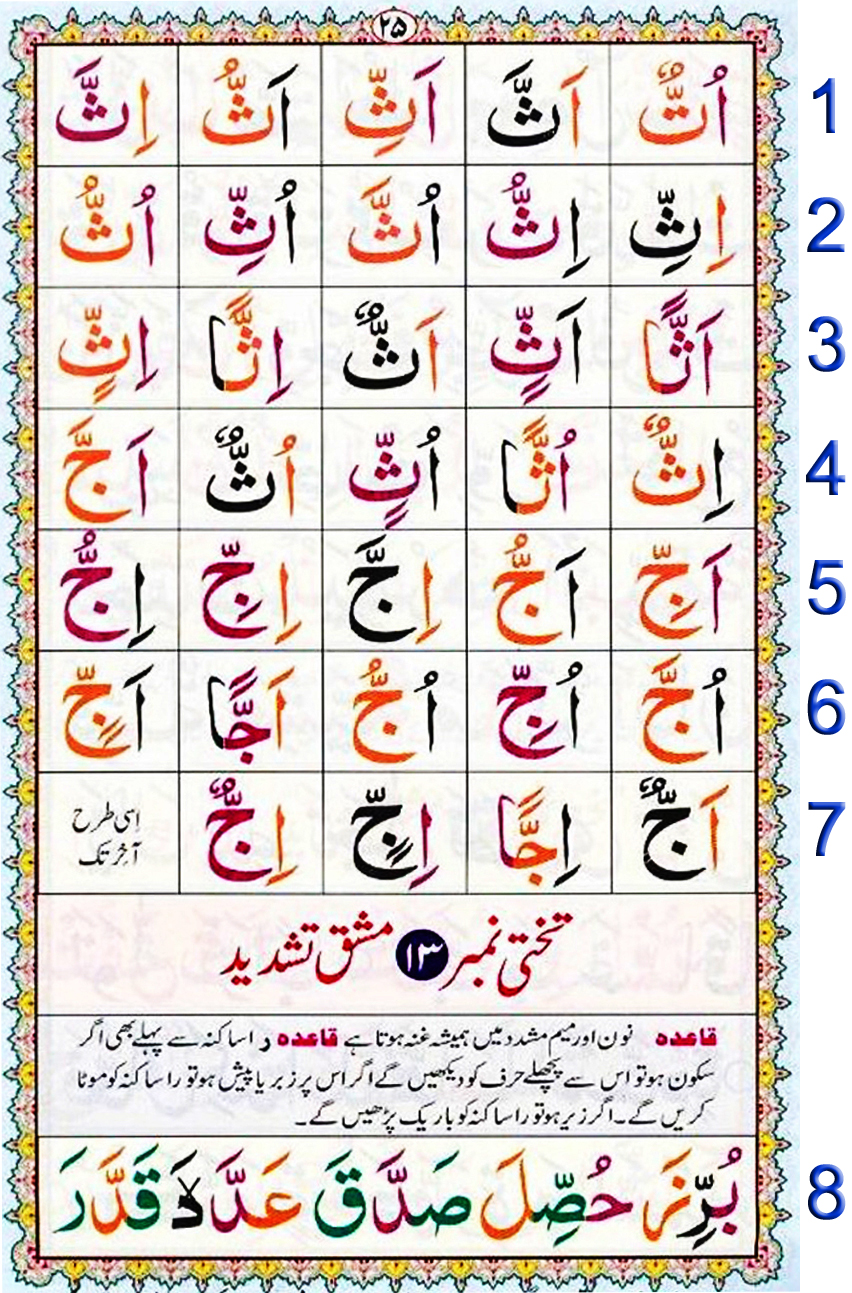 ۲۵
اُتٌّ اَثَّ اَثِّ اَثُّ اِثَّ 1
اِثِّ اِثُّ اُثَّ اُثِّ اُثُّ 2
اَثًّا اَثٍّ اَثٌّ اِثًّا اِثٍّ 3
اِثٌّ اُثًّا اُثٍّ اُثٌّ اَجَّ 4
اَجِّ اَجُّ اِجَّ اِجِّ اِجُّ 5
اُجَّ اُجِّ اُجُّ اَجًّا اَجٍّ 6
اَجٌّ اِجًّا اِجٍّ اِجٌّ اِسی طرح آخِر تک 7
تختی نمبر ۱۳ مشق تشدید
قاعدہ نون اور میم مشدد میں ہمیشہ غنہ ہوتا ہے قاعدہ را ساکنہ سے پہلے بھی اگر
سکون ہو تو اس سے پچھلے حرف کو دیکھیں گے اگر اس پر زبر یا پیش ہو تو را ساکنہ کو موٹا
کریں گے۔ اگر زیر ہو تو را ساکنہ کو باریک پڑھیں گے۔
بُرِّزَ حُصِّلَ صَدَّقَ عَدَّدَ قَدَّرَ 8